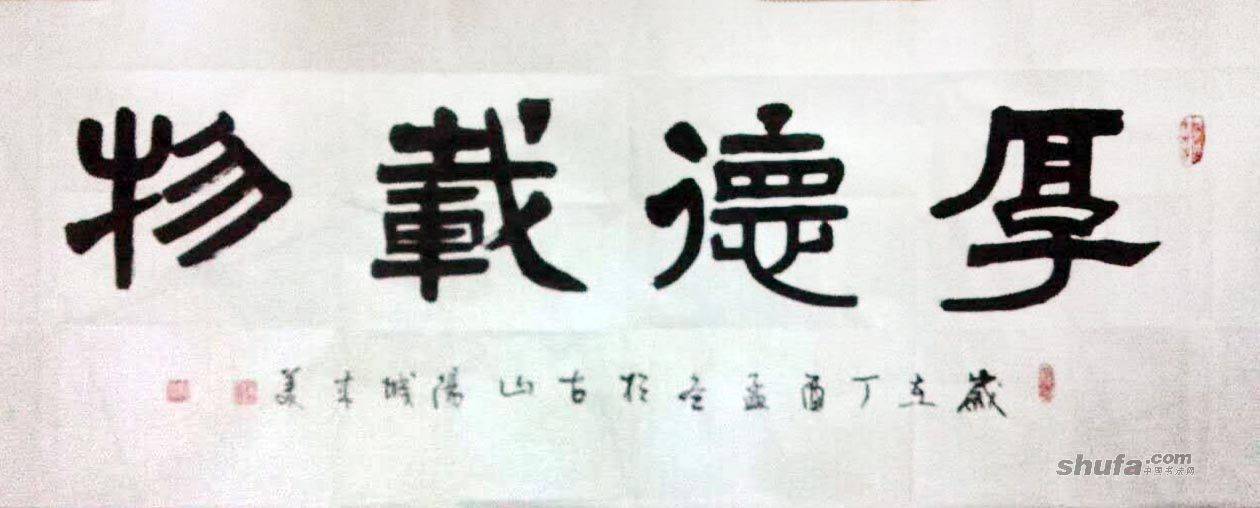 厚德載物
歲在丁酉孟冬於古山陽城
shufa.com
中国书法网